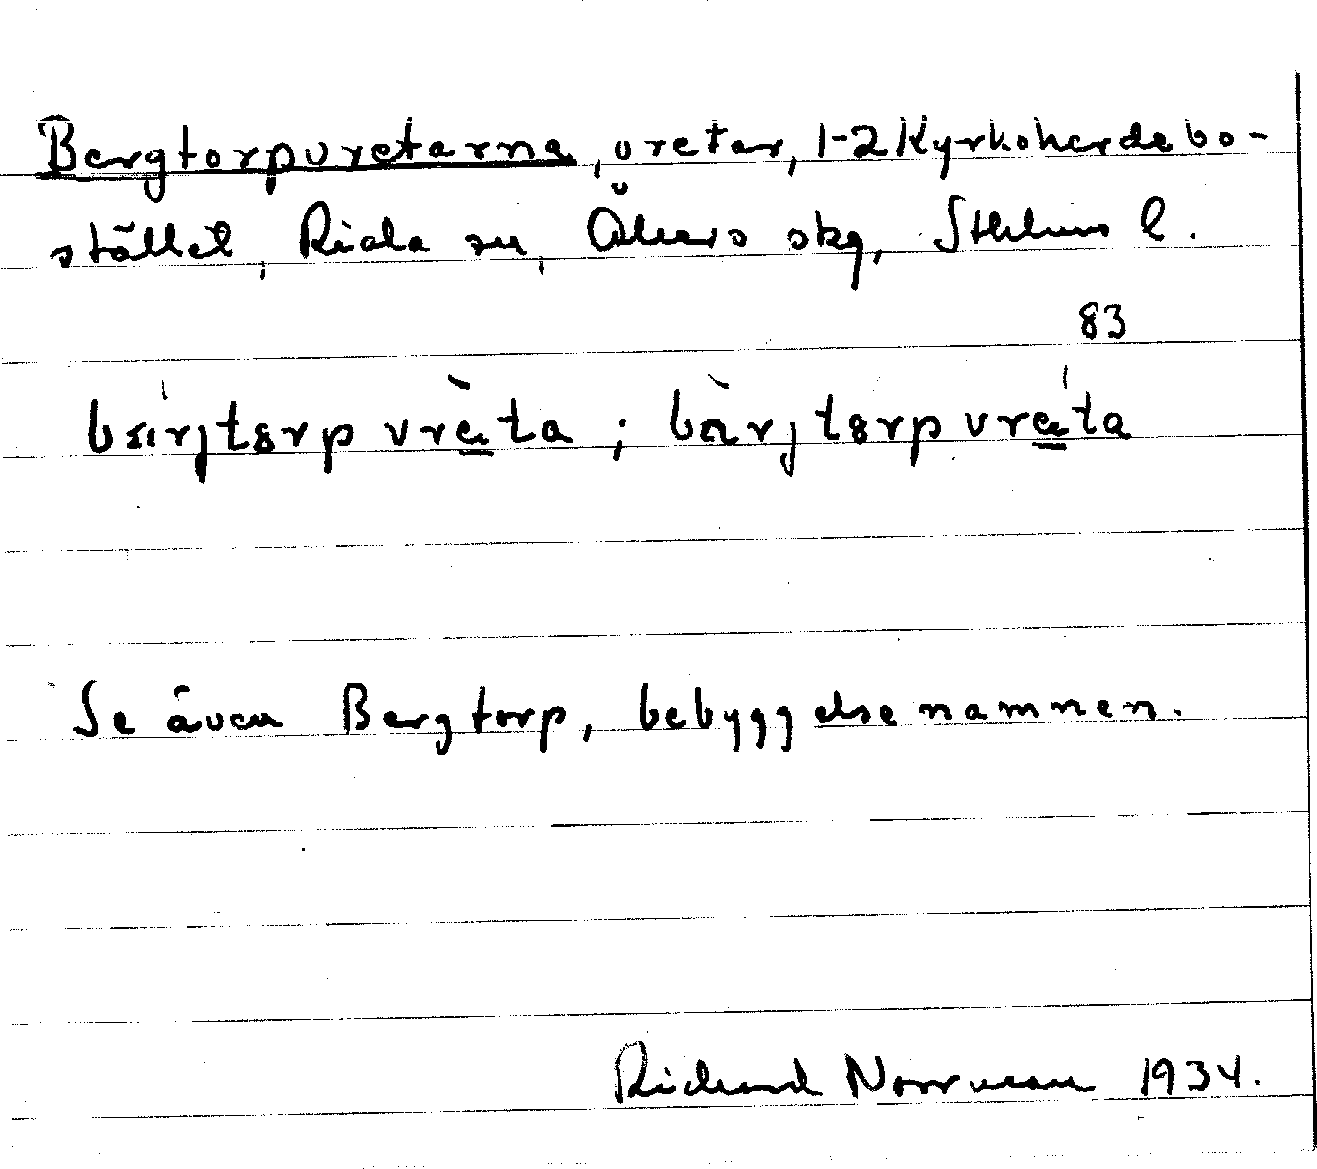 Bergtorpvretarna, vretar, 1-2 Kyrkoherdebo-
stället, Riala sn, Åkers skg, Sthlms l.
83
bärjtɵrp vrèta ; bàrjtɵrp vréta
Se även Bergtorp, bebyggelsenamnen.
Richard Norrman 1934.